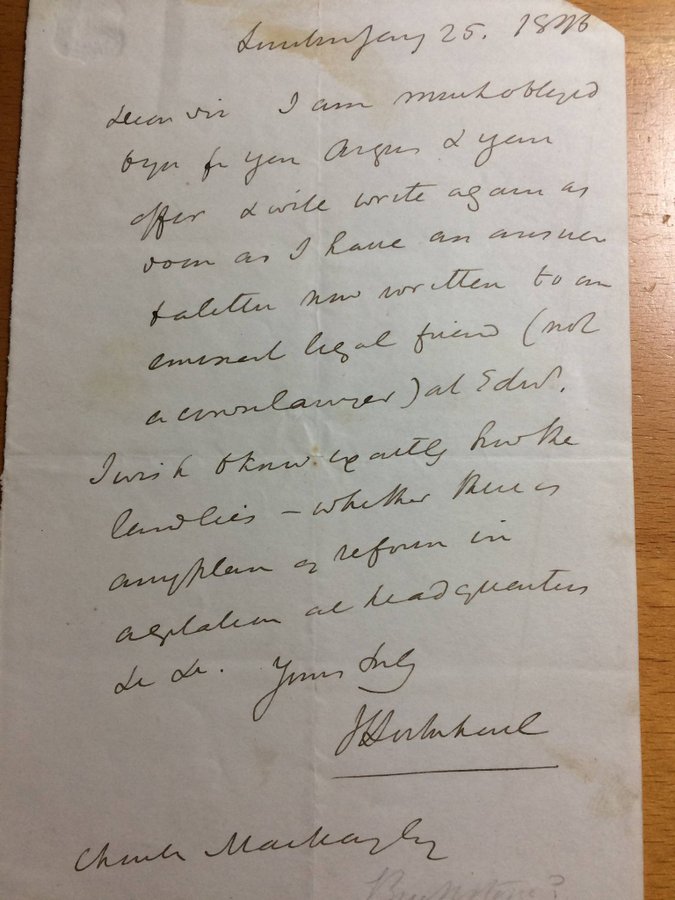 25. 1846
Dear Sir I am much obliged
to you for your Argus & your
offer & will write again as
soon as I have an answer
to a letter now written to an
eminent legal friend (not
a crown lawyer) at Edin.
I wish to know exactly how the
land lies – whether there is
any plan of reform in
agitation at headquarters
&c &c. Yours truly
Charles Mackay Esq